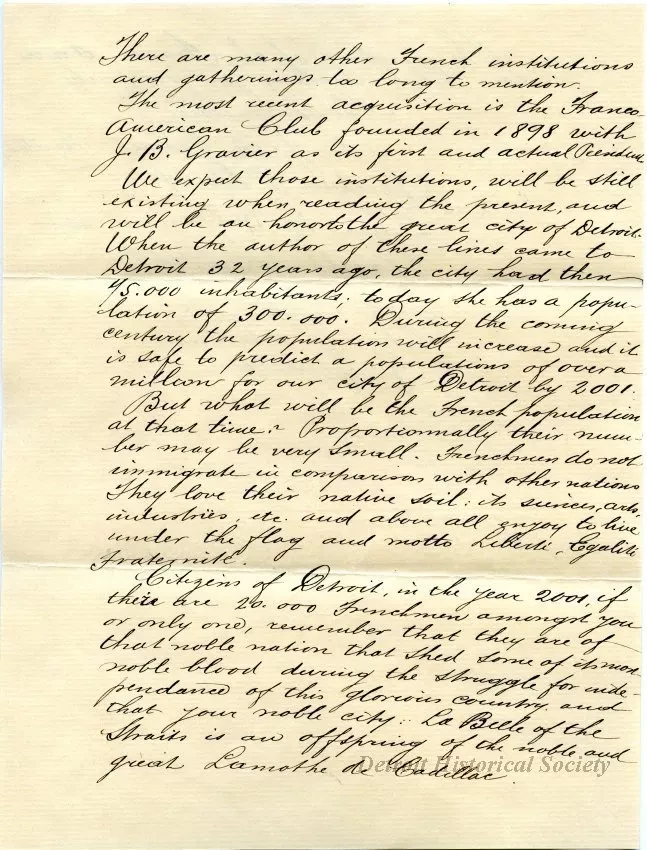 There are many other French institutions
and gatherings too long to mention.
The most recent acquisition is the Franco-
American Club founded in 1898 with
J. B. Gravier as its first and actual President
We expect those institutions, will be still
existing when reading the present, and
will be an honor to the great city of Detroit.
When the author of these lines came to
Detroit 32 years ago, the city had then
75.000 inhabitants; today she has a popu-
lation of 300.000. During the coming
century the population will increase and it
is safe to predict a populations of over a
million for our city of Detroit by 2001.
But what will be the French population
at that time? Proportionnally their num-
ber may be very small. Frenchmen do not
immigrate in comparison with other nations
They love their native soil: its siences, arts,
industries, etc. and above all enjoy to live
under the flag and motto Liberté, Egalité
Fraternité.
Citizens of Detroit, in the year 2001, if
there are 20.000 Frenchmen amongst you
or only one, remember that they are of
that noble nation that shed some of its most
noble blood during the struggle for inde-
pendance of this glorious country and
that your noble city: La Belle of the
Straits is an offspring of the noble and
great Lamothe de Cadillac.
Detroit Historical Society